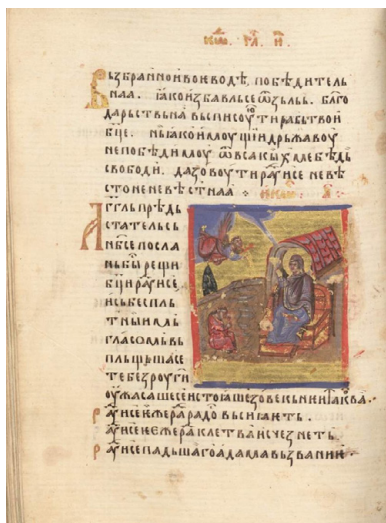 конд. гл. и.
Възбранноивоеводѣ, побѣдитель
наа. ꙗкоизбавльсеѿзьль. бл҃го
дарьствьнаавьсписоуѥтирабьтвои
бц҃е. ньꙗкоимоущидрьжавоу
непобѣдимоу ѿвсакыхмебѣдь
свободи. дазовоутираꙋисе невѣ
стоненевѣстнаа
Агг҃льпрѣдь
стательсь
нб҃сепосла
ньбы рещи
бц҃ираꙋисе
исьбеспль
тныимь
гласомьвь
пльщьшасе
тебезроуги
оужасашесеистоꙗшезовекьниитакова
раꙋисееюжерадовьсиꙗѥть.
раꙋисееюжеклетваисчезнеть.
раꙋисепадьшагоадамавьзвание